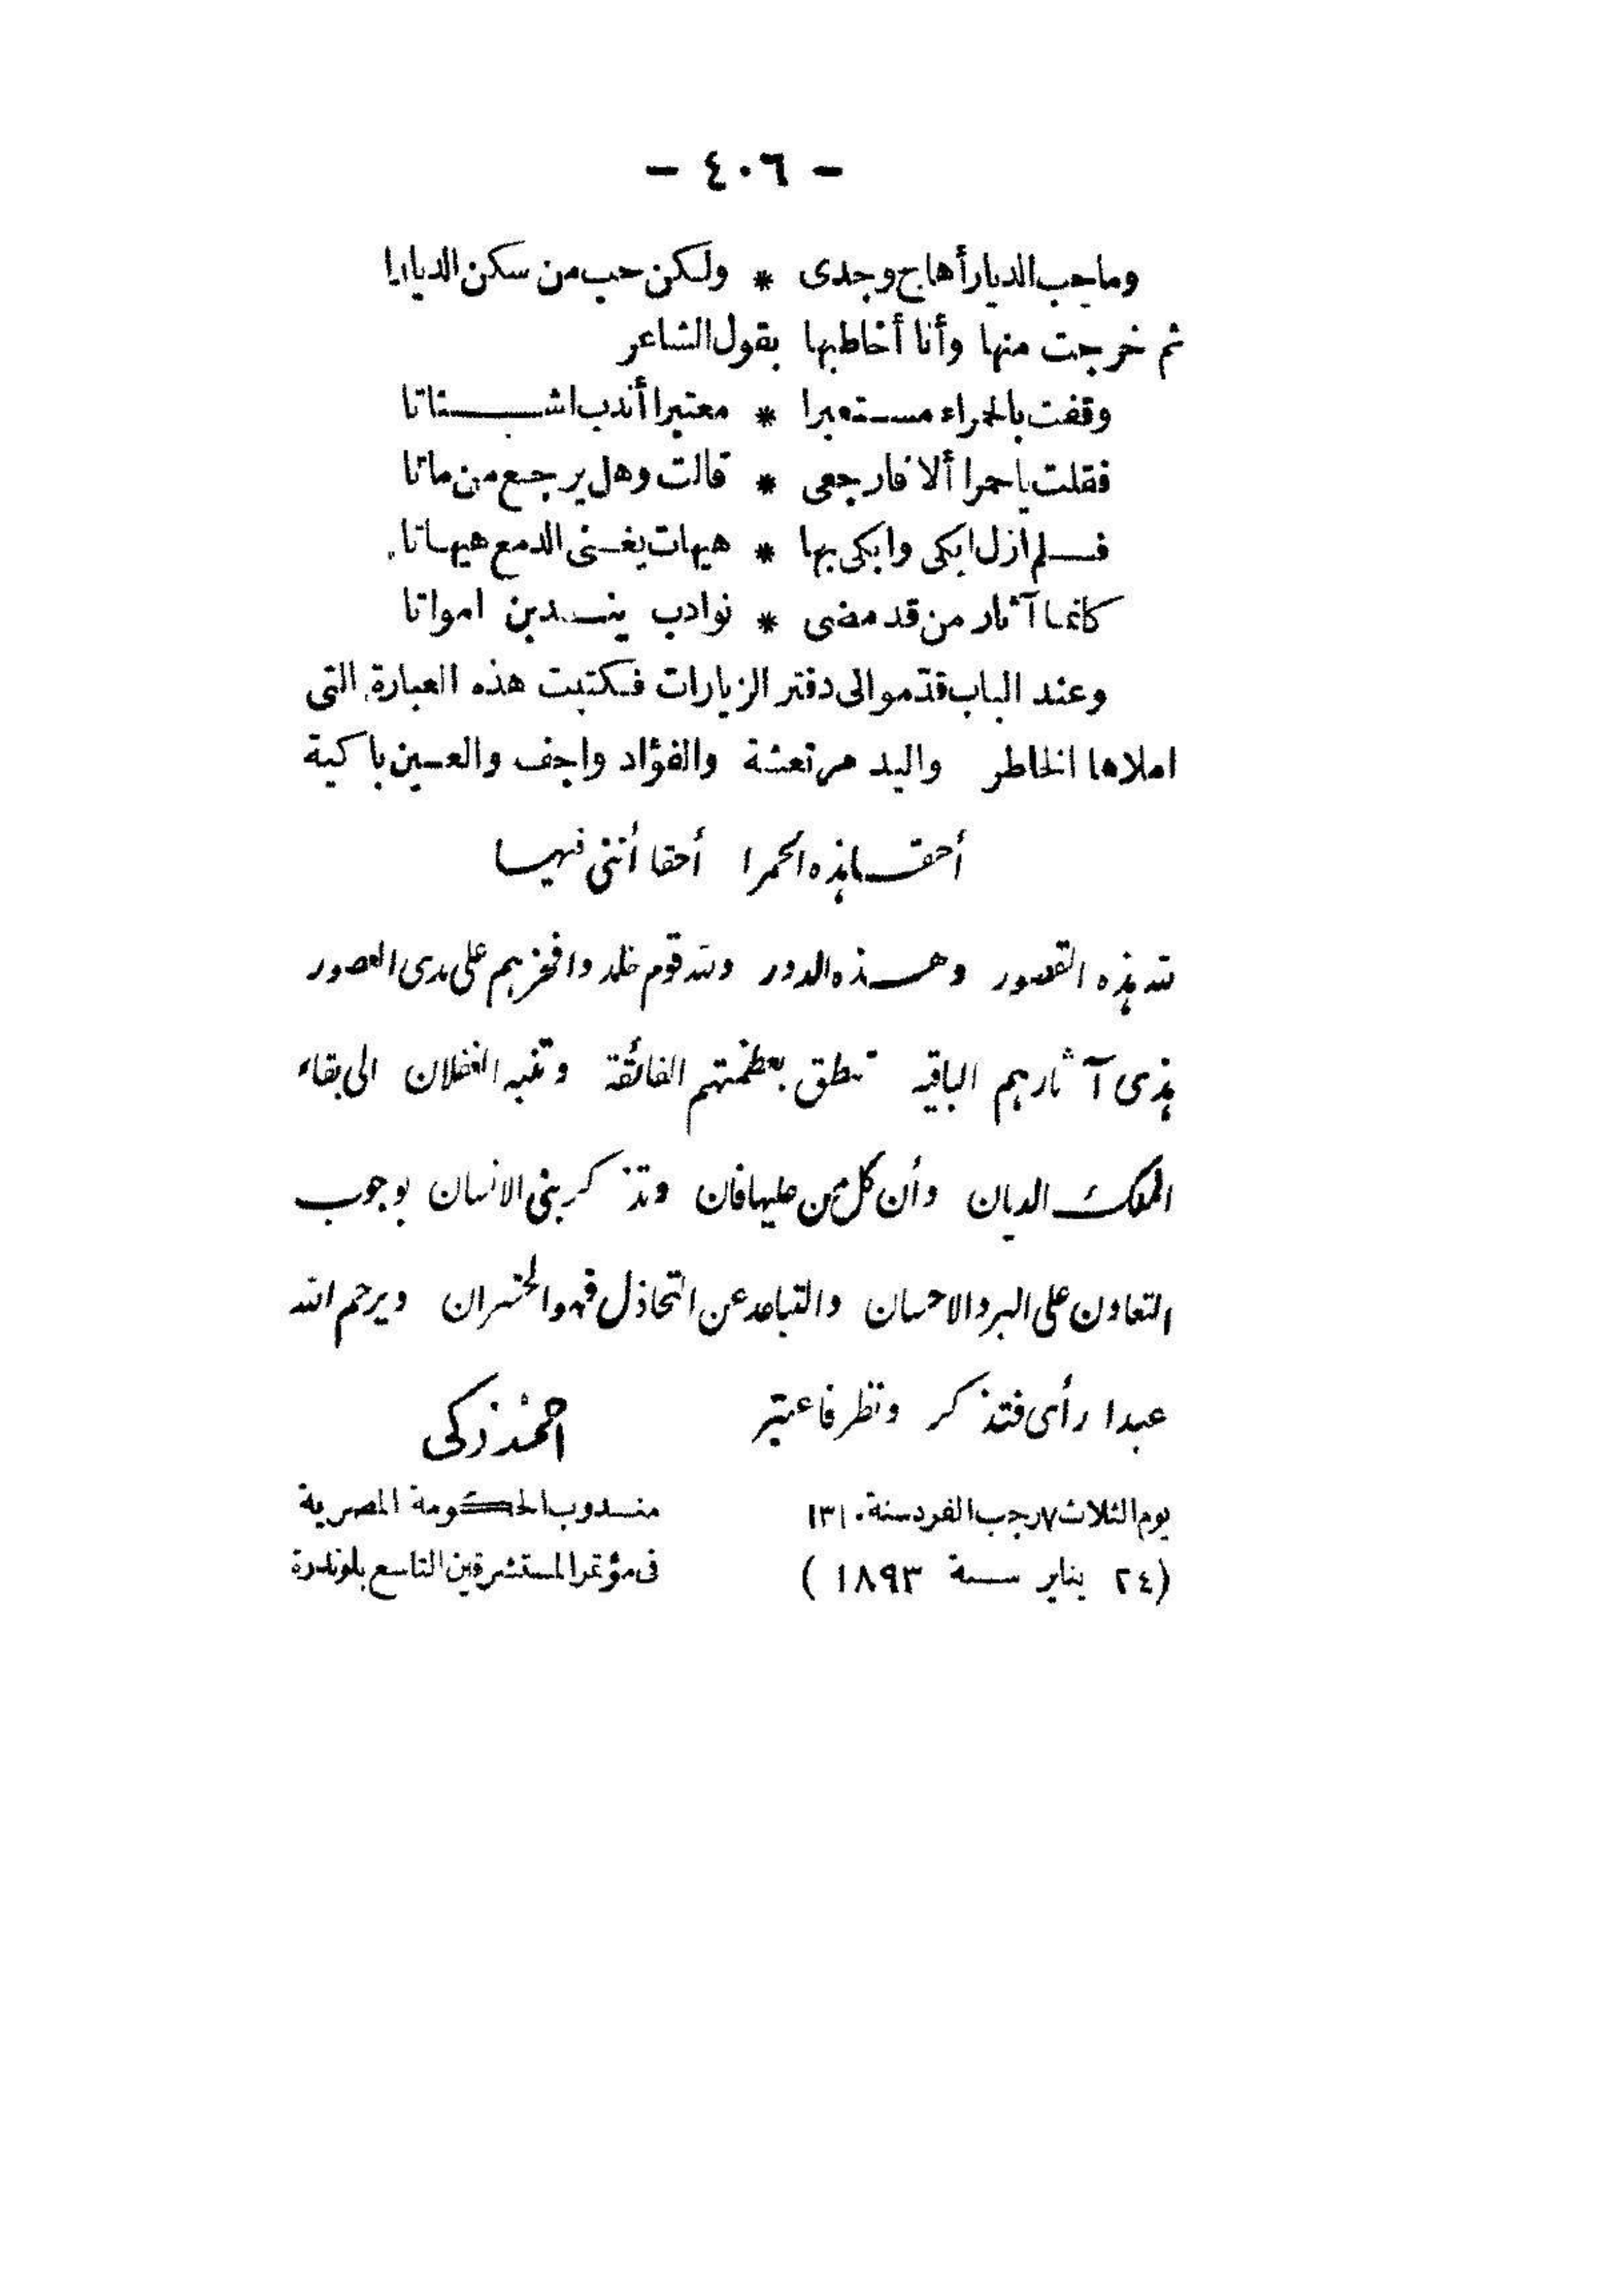 - ٤٠٦ -
وما حب الديار أهاج وجدى * ولكن حب من سكن الديارا
ثم خرجت منها وأنا أخاطبها بقول الشاعر
وقفت بالحمراء مستعبرا * معتبرا أندب اشتاتا
فقلت يا حمرا ألا فارجعى * قالت وهل يرجع من ماتا
فلم ازل ابكى وابكى بها * هيهات يغنى الدمع هيهاتا
كانما آثار من قد مضى * نوادب يندبن امواتا
وعند الباب قدّموا لى دفتر الزيارات فكتبت هذه العبارة التى
املاها الخاطر واليد مرتعشة والفؤاد واجف والعين باكية
أحقا هذه الحمرا أحقا أننى فيها
لله هذه القصور وهذه الدور ولله قوم خلدوا فخرهم على مدى العصور
هذى آثارهم الباقية تنطق بعظمتهم الفائقة وتنبه الغفلان الى بقاء
الملك الديان وأن كل من عليها فان وتذكر بنى الانسان بوجوب
التعاون على البر والاحسان والتباعد عن التخاذل فهو الخسران ويرحم الله
عبدا رأى فتذكر ونظر فاعتبر احمد زكى
يوم الثلاث ٧ رجب الفرد سنة ١٣١٠ مندوب الحكومة المصرية
(٢٤ يناير سنة ١٨٩٣) فى مؤتمر المستشرقين التاسع بلوندرة